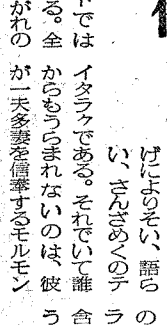 では
る。全
がれの
げによりそい、語ら
い、さんざめくのテ
イタラクである。それでいて誰
からもうらまれないのは、彼
が一夫多妻を信奉するモルモン
の
ラ
含
う